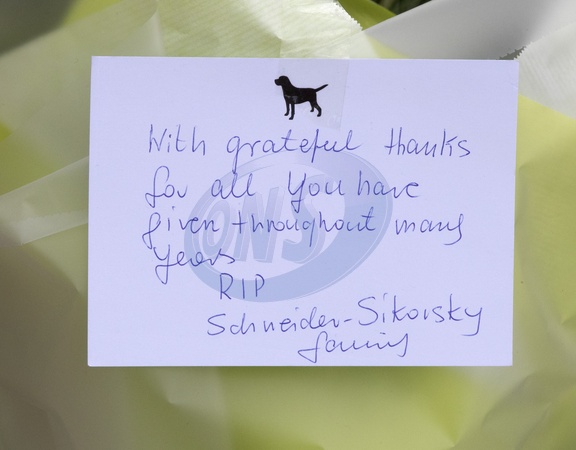 With grateful thanks
for all you have
given throughout many
years
RIP
Schneider-Sikorsky
family
ONS